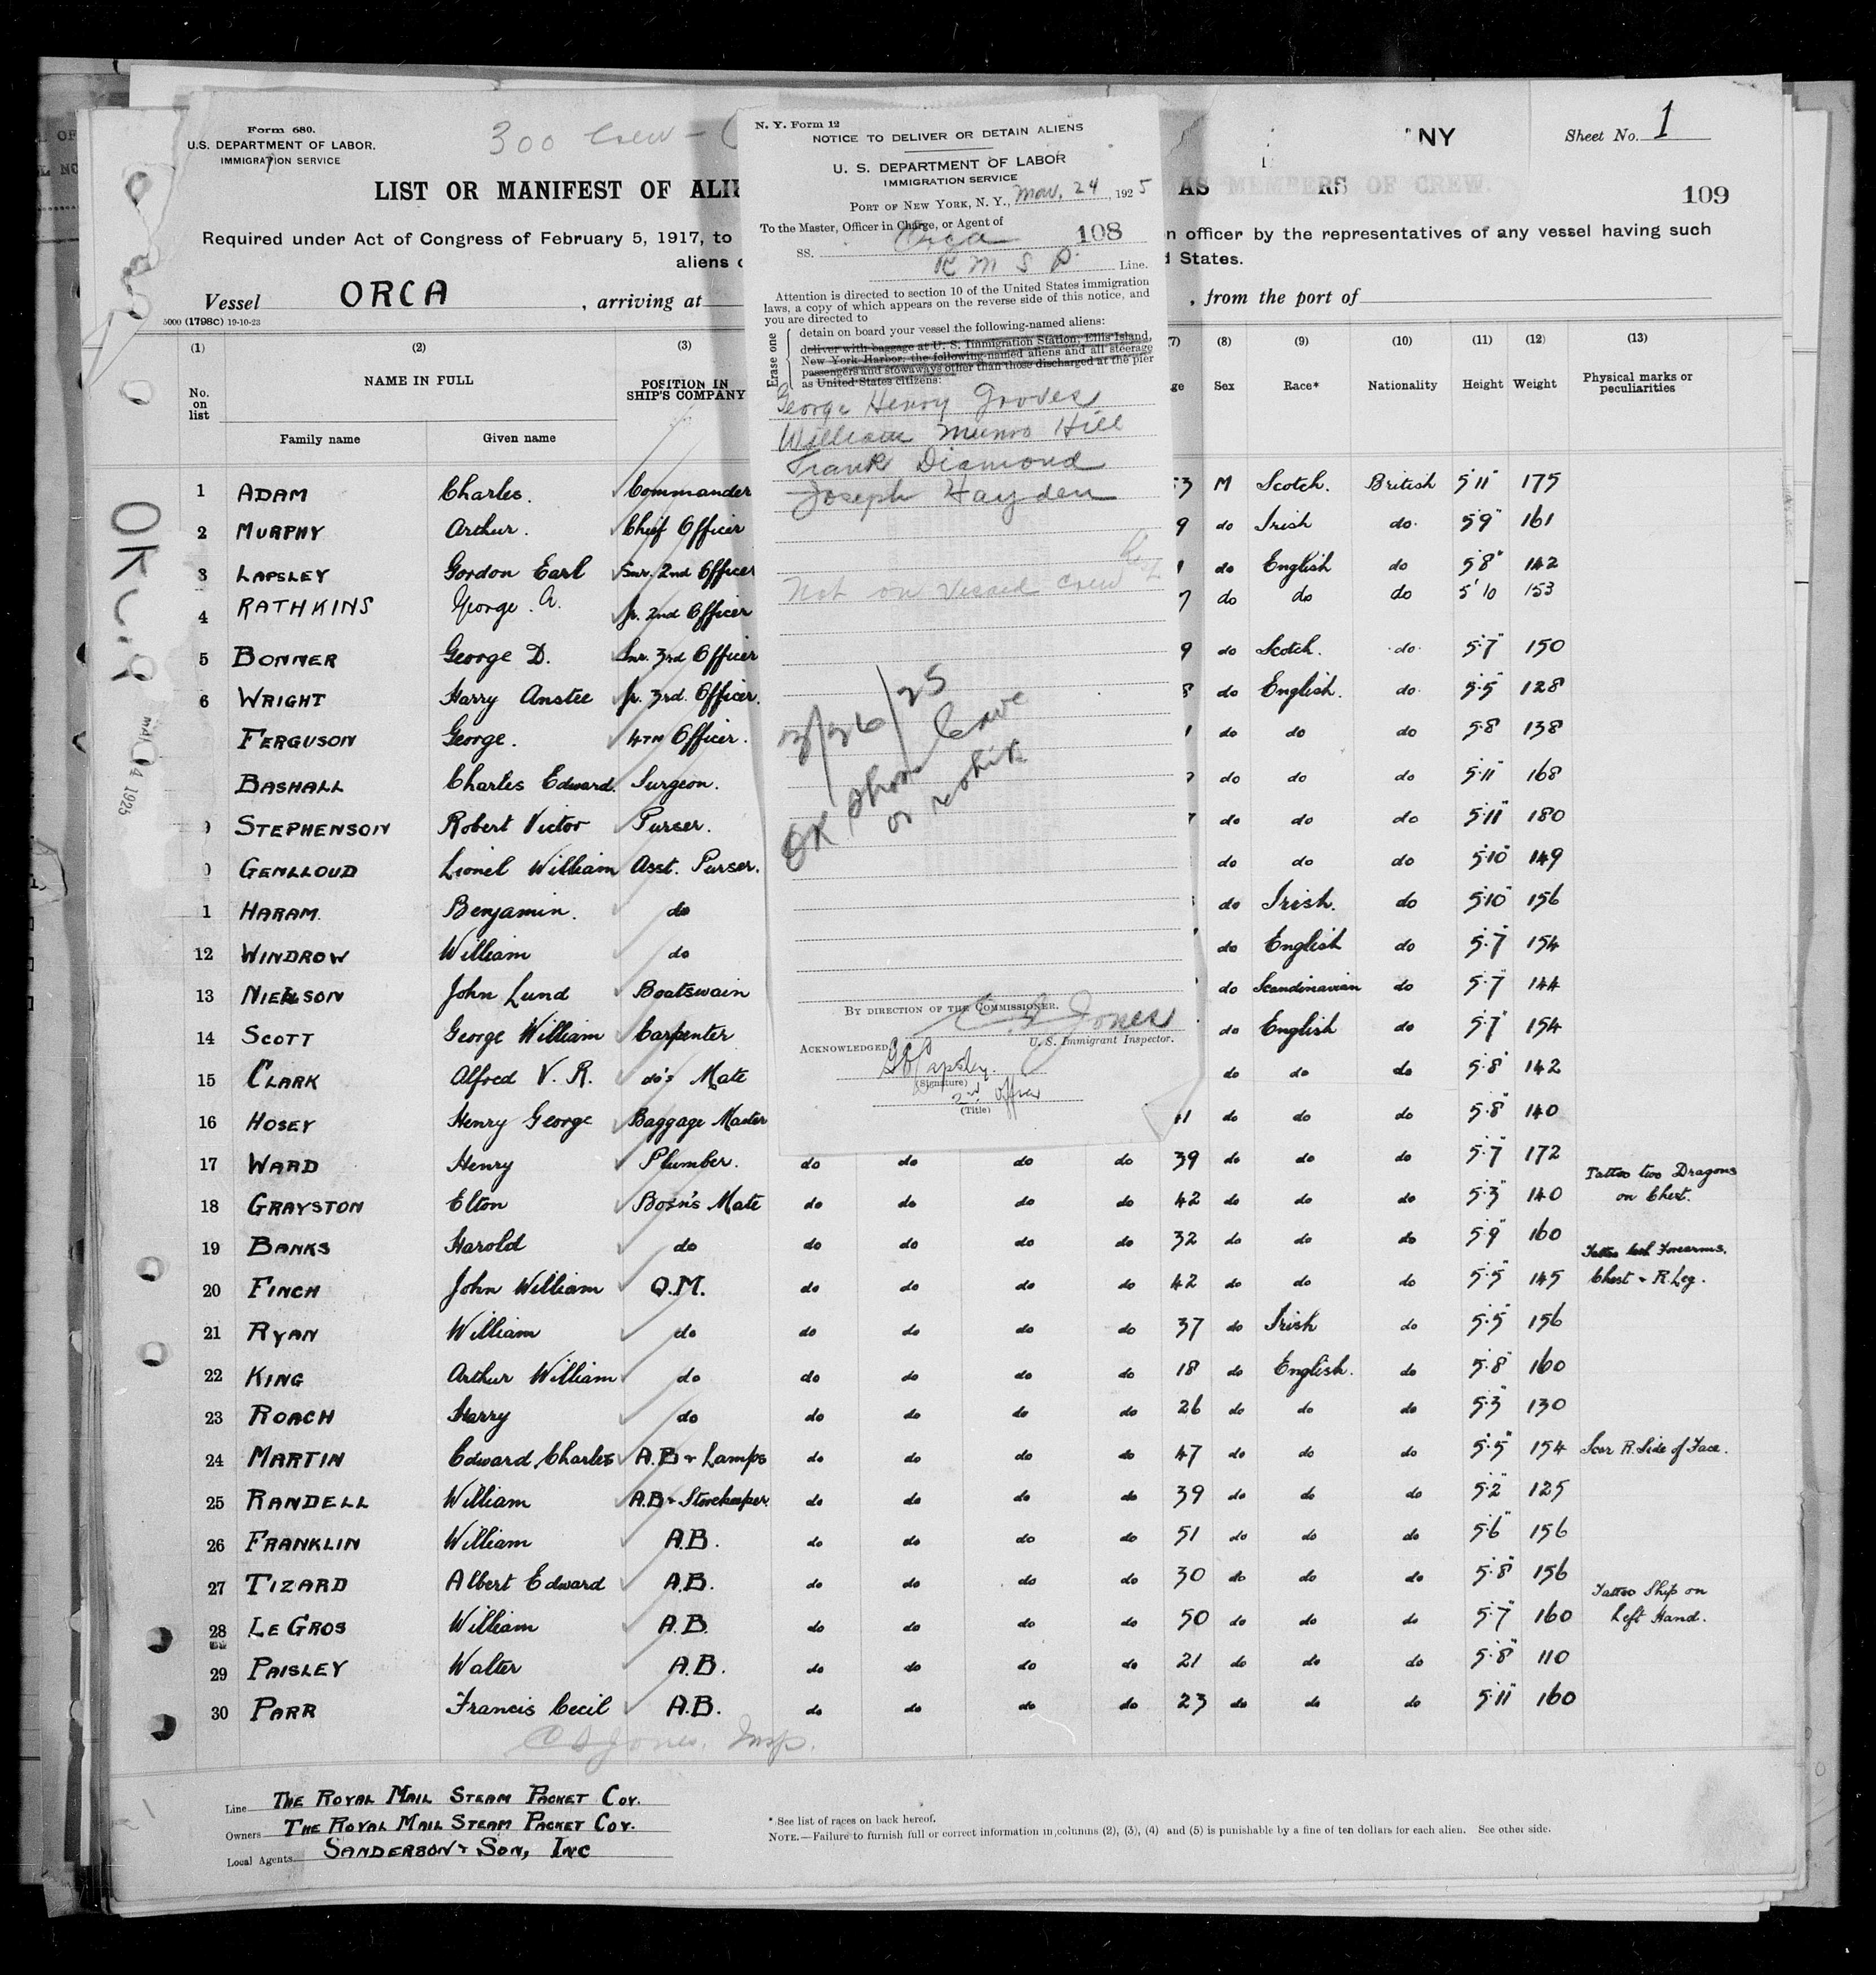 Form 680.
U.S. DEPARTMENT OF LABOR.
IMMIGRATION SERVICE
300 Crew -
NY
Sheet No. 1
109
LIST OR MANIFEST OF ALIE
AS MEMBERS OF CREW.
Required under Act of Congress of February 5, 1917, to
n officer by the representatives of any vessel having such
aliens
d States.
Vessel ORCA, arriving at
, from the port of
5000 (1798c) 19-10-23
N. Y. Form 12
NOTICE TO DELIVER OR DETAIN ALIENS
U. S. DEPARTMENT OF LABOR
IMMIGRATION SERVICE
PORT OF NEW YORK, N. Y., Mar. 24, 1925
To the Master, Officer in Charge, or Agent of
108
SS. Orca
R M S P. Line.
Attention is directed to section 10 of the United States immigration
laws, a copy of which appears on the reverse side of this notice, and
you are directed to
Erase one
detain on board your vessel the following-named aliens:
deliver with baggage at U. S. Immigration Station, Ellis Island,
New York Harbor, the following named aliens and all steerage
passengers and stowaways other than those discharged at the pier
as United States citizens:
George Henry Groves
William Munro Hill
Frank Diamond
Joseph Hayden
Not on Vessel Crew
3/26/25
OK
BY DIRECTION OF THE COMMISSIONER.
C S Jones
U. S. Immigrant Inspector.
ACKNOWLEDGED:
G E Lapsley.
(Signature)
2nd Officer
(Title)
(1) (2) (3) (7) (8) (9) (10) (11) (12) (13)
No. on list
NAME IN FULL
Family name
Given name
POSITION IN SHIP'S COMPANY
ge
Sex
Race*
Nationality
Height
Weight
Physical marks or peculiarities
1 ADAM Charles. Commander 53 M Scotch. British 5'11" 175
2 MURPHY Arthur. Chief Officer 9 do Irish do. 5'9" 161
3 LAPSLEY Gordon Earl Snr. 2nd Officer 1 do English do 5'8" 142
4 RATHKINS George. A. Jr. 2nd Officer 7 do do do 5'10 153
5 BONNER George D. Snr. 3rd Officer 9 do Scotch. do. 5'7" 150
6 WRIGHT Harry Anstee Jr. 3rd. Officer. 8 do English. do. 5'5" 128
FERGUSON George. 4TH Officer. 1 do do do 5'8 138
BASHALL Charles Edward. Surgeon. do do do 5'11" 168
9 STEPHENSON Robert Victor Purser. do do do 5'11" 180
0 GENLLOUD Lionel William Asst. Purser. do do do 5'10" 149
1 HARAM. Benjamin. do do Irish. do 5'10" 156
12 WINDROW William do do English do 5'7" 154
13 NIELSON John Lund Boatswain do Scandinavian do 5'7" 144
14 SCOTT George William Carpenter do English do 5'7" 154
15 CLARK Alfred V. R. do's Mate do do do 5'8" 142
16 HOSEY Henry George Baggage Master 41 do do do 5'8" 140
17 WARD Henry Plumber. do do do do 39 do do do 5'7" 172
18 GRAYSTON Elton Bosn's Mate do do do do 42 do do do 5'3" 140 Tattoo two Dragons on Chest.
19 BANKS Harold do do do do do 32 do do do 5'9" 160
20 FINCH John William Q.M. do do do do 42 do do do 5'5" 145 Tattoo both Forearms. Chest & R. Leg.
21 RYAN William do do do do do 37 do Irish do 5'5" 156
22 KING Arthur William do do do do do 18 do English. do 5'8" 160
23 ROACH Harry do do do do do 26 do do do 5'3" 130
24 MARTIN Edward Charles A.B & Lamps do do do do 47 do do do 5'5" 154 Scar R. Side of Face.
25 RANDELL William A.B & Storekeeper do do do do 39 do do do 5'2" 125
26 FRANKLIN William A.B. do do do do 51 do do do 5'6" 156
27 TIZARD Albert Edward A.B. do do do do 30 do do do 5'8" 156
28 LE GROS William A.B. do do do do 50 do do do 5'7" 160 Tattoo Ship on Left Hand.
29 PAISLEY Walter A.B. do do do do 21 do do do 5'8" 110
30 PARR Francis Cecil A.B. do do do do 23 do do do 5'11" 160
C S Jones, Insp.
Line THE ROYAL MAIL STEAM PACKET COY.
Owners THE ROYAL MAIL STEAM PACKET COY.
Local Agents SANDERSON & SON, INC
* See list of races on back hereof.
NOTE.—Failure to furnish full or correct information in columns (2), (3), (4) and (5) is punishable by a fine of ten dollars for each alien. See other side.